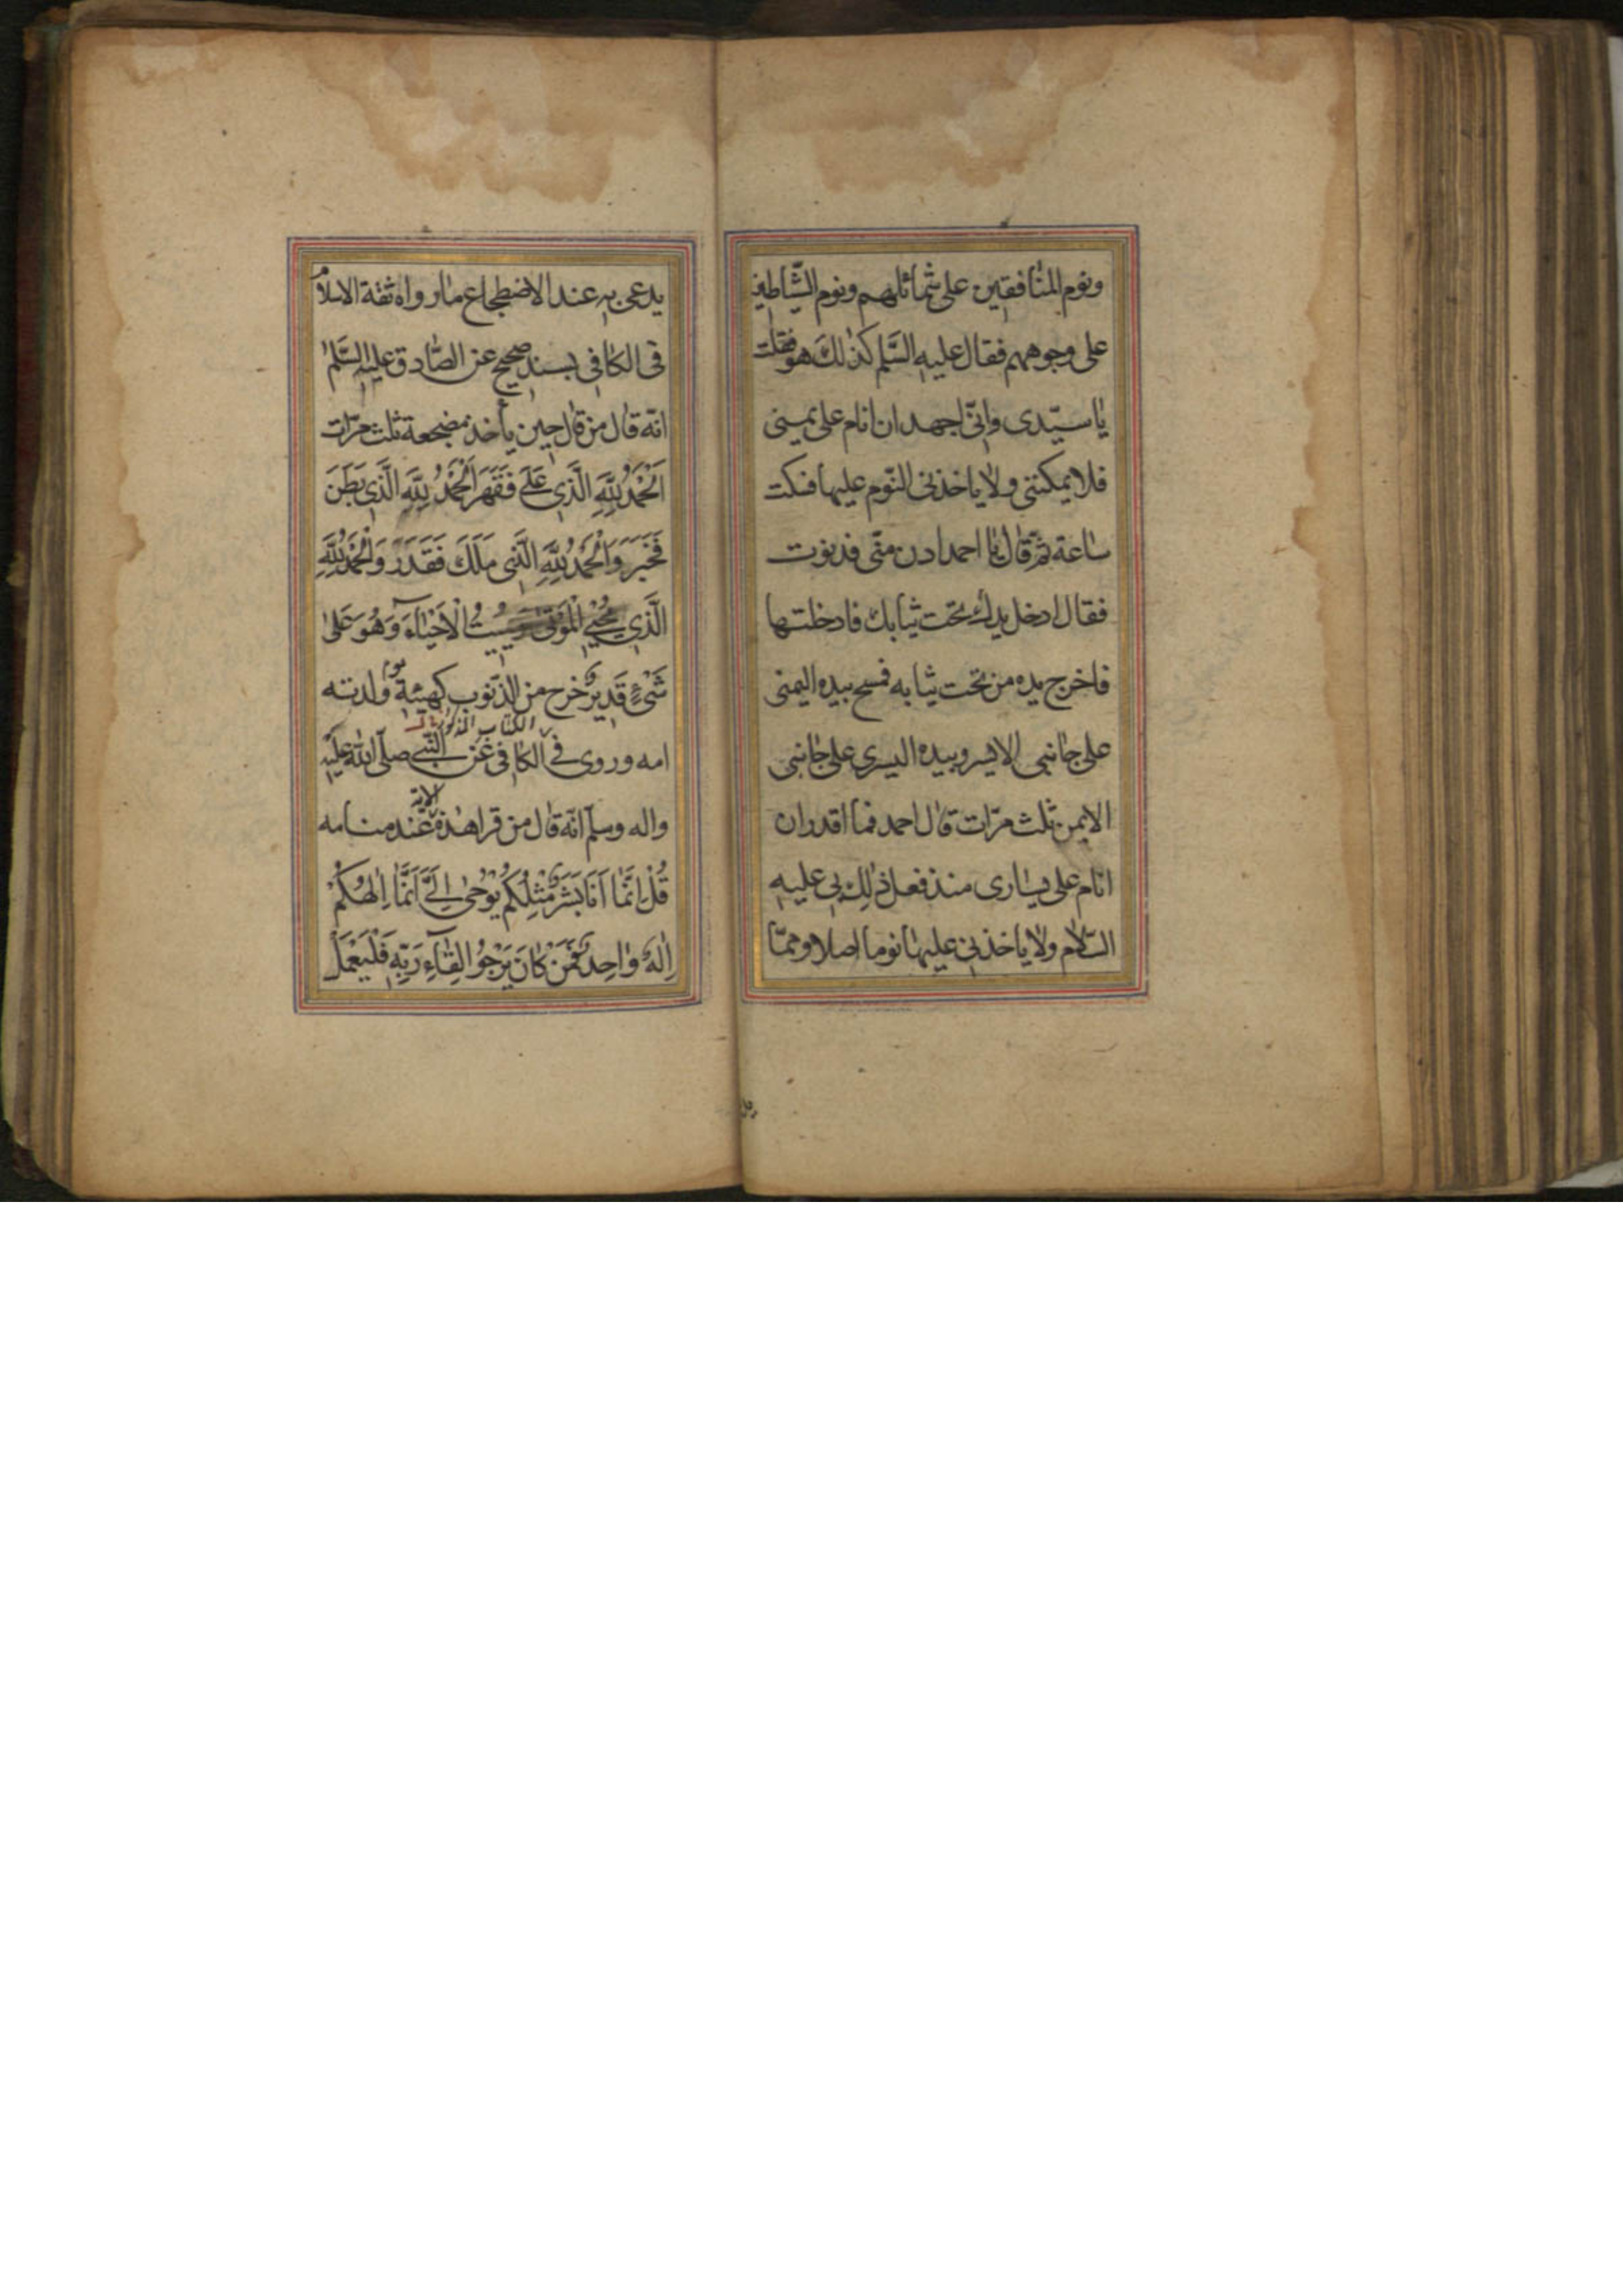 ونوم المنافقين على شمائلهم ونوم الشياطين
على وجوههم فقال عليه السلم كذلك هو فقلت
يا سيّدى وانّى اجهد ان انام على يمينى
فلا يمكننى ولا ياخذنى النّوم عليها فسكت
ساعة ثمّ قال يا احمد ادن منّى فدنوت
فقال ادخل يدك تحت ثيابك فادخلتها
فاخرج يده من تحت ثيابه فمسح بيده اليمنى
على جانبى الايسر وبيده اليسرى على جانبى
الايمن ثلث مرّات قال احمد فما اقدر ان
انام على يسارى منذ فعل ذلك بى عليه
السّلام ولا ياخذنى عليها نوم اصلا وممّا
يد
يدعى به عند الاضطجاع ما رواه ثقة الاسلام
فى الكافى بسند صحيح عن الصّادق عليه السّلم
انّه قال من قال حين يأخذ مضجعه ثلث مرّات
اَلْحَمْدُ لِلّٰهِ الَّذِي عَلَى فَقَهَرَ اَلْحَمْدُ لِلّٰهِ الَّذِي بَطَنَ
فَخَبَرَ وَالْحَمْدُ لِلّٰهِ الَّذِى مَلَكَ فَقَدَرَ وَالْحَمْدُ لِلّٰهِ
الَّذِي يُحْيِي الْمَوْتٰى وَيُمِيتُ الْاَحْيَاءَ وَهُوَ عَلٰى
شَيْءٍ قَدِيرٌ خرج من الذّنوب كهيئة يوم ولدته
امه وروى فى الكتاب المذكور الكافى عن النّبى صلّى الله عليه
واله وسلّم انّه قال من قرا هذه الاية عند منامه
قُلْ اِنَّمَا اَنَا بَشَرٌ مِثْلُكُمْ يُوحٰى اِلَيَّ اَنَّمَا اِلٰهُكُمْ
اِلٰهٌ وَاحِدٌ فَمَنْ كَانَ يَرْجُو لِقَاءَ رَبِّهِ فَلْيَعْمَلْ